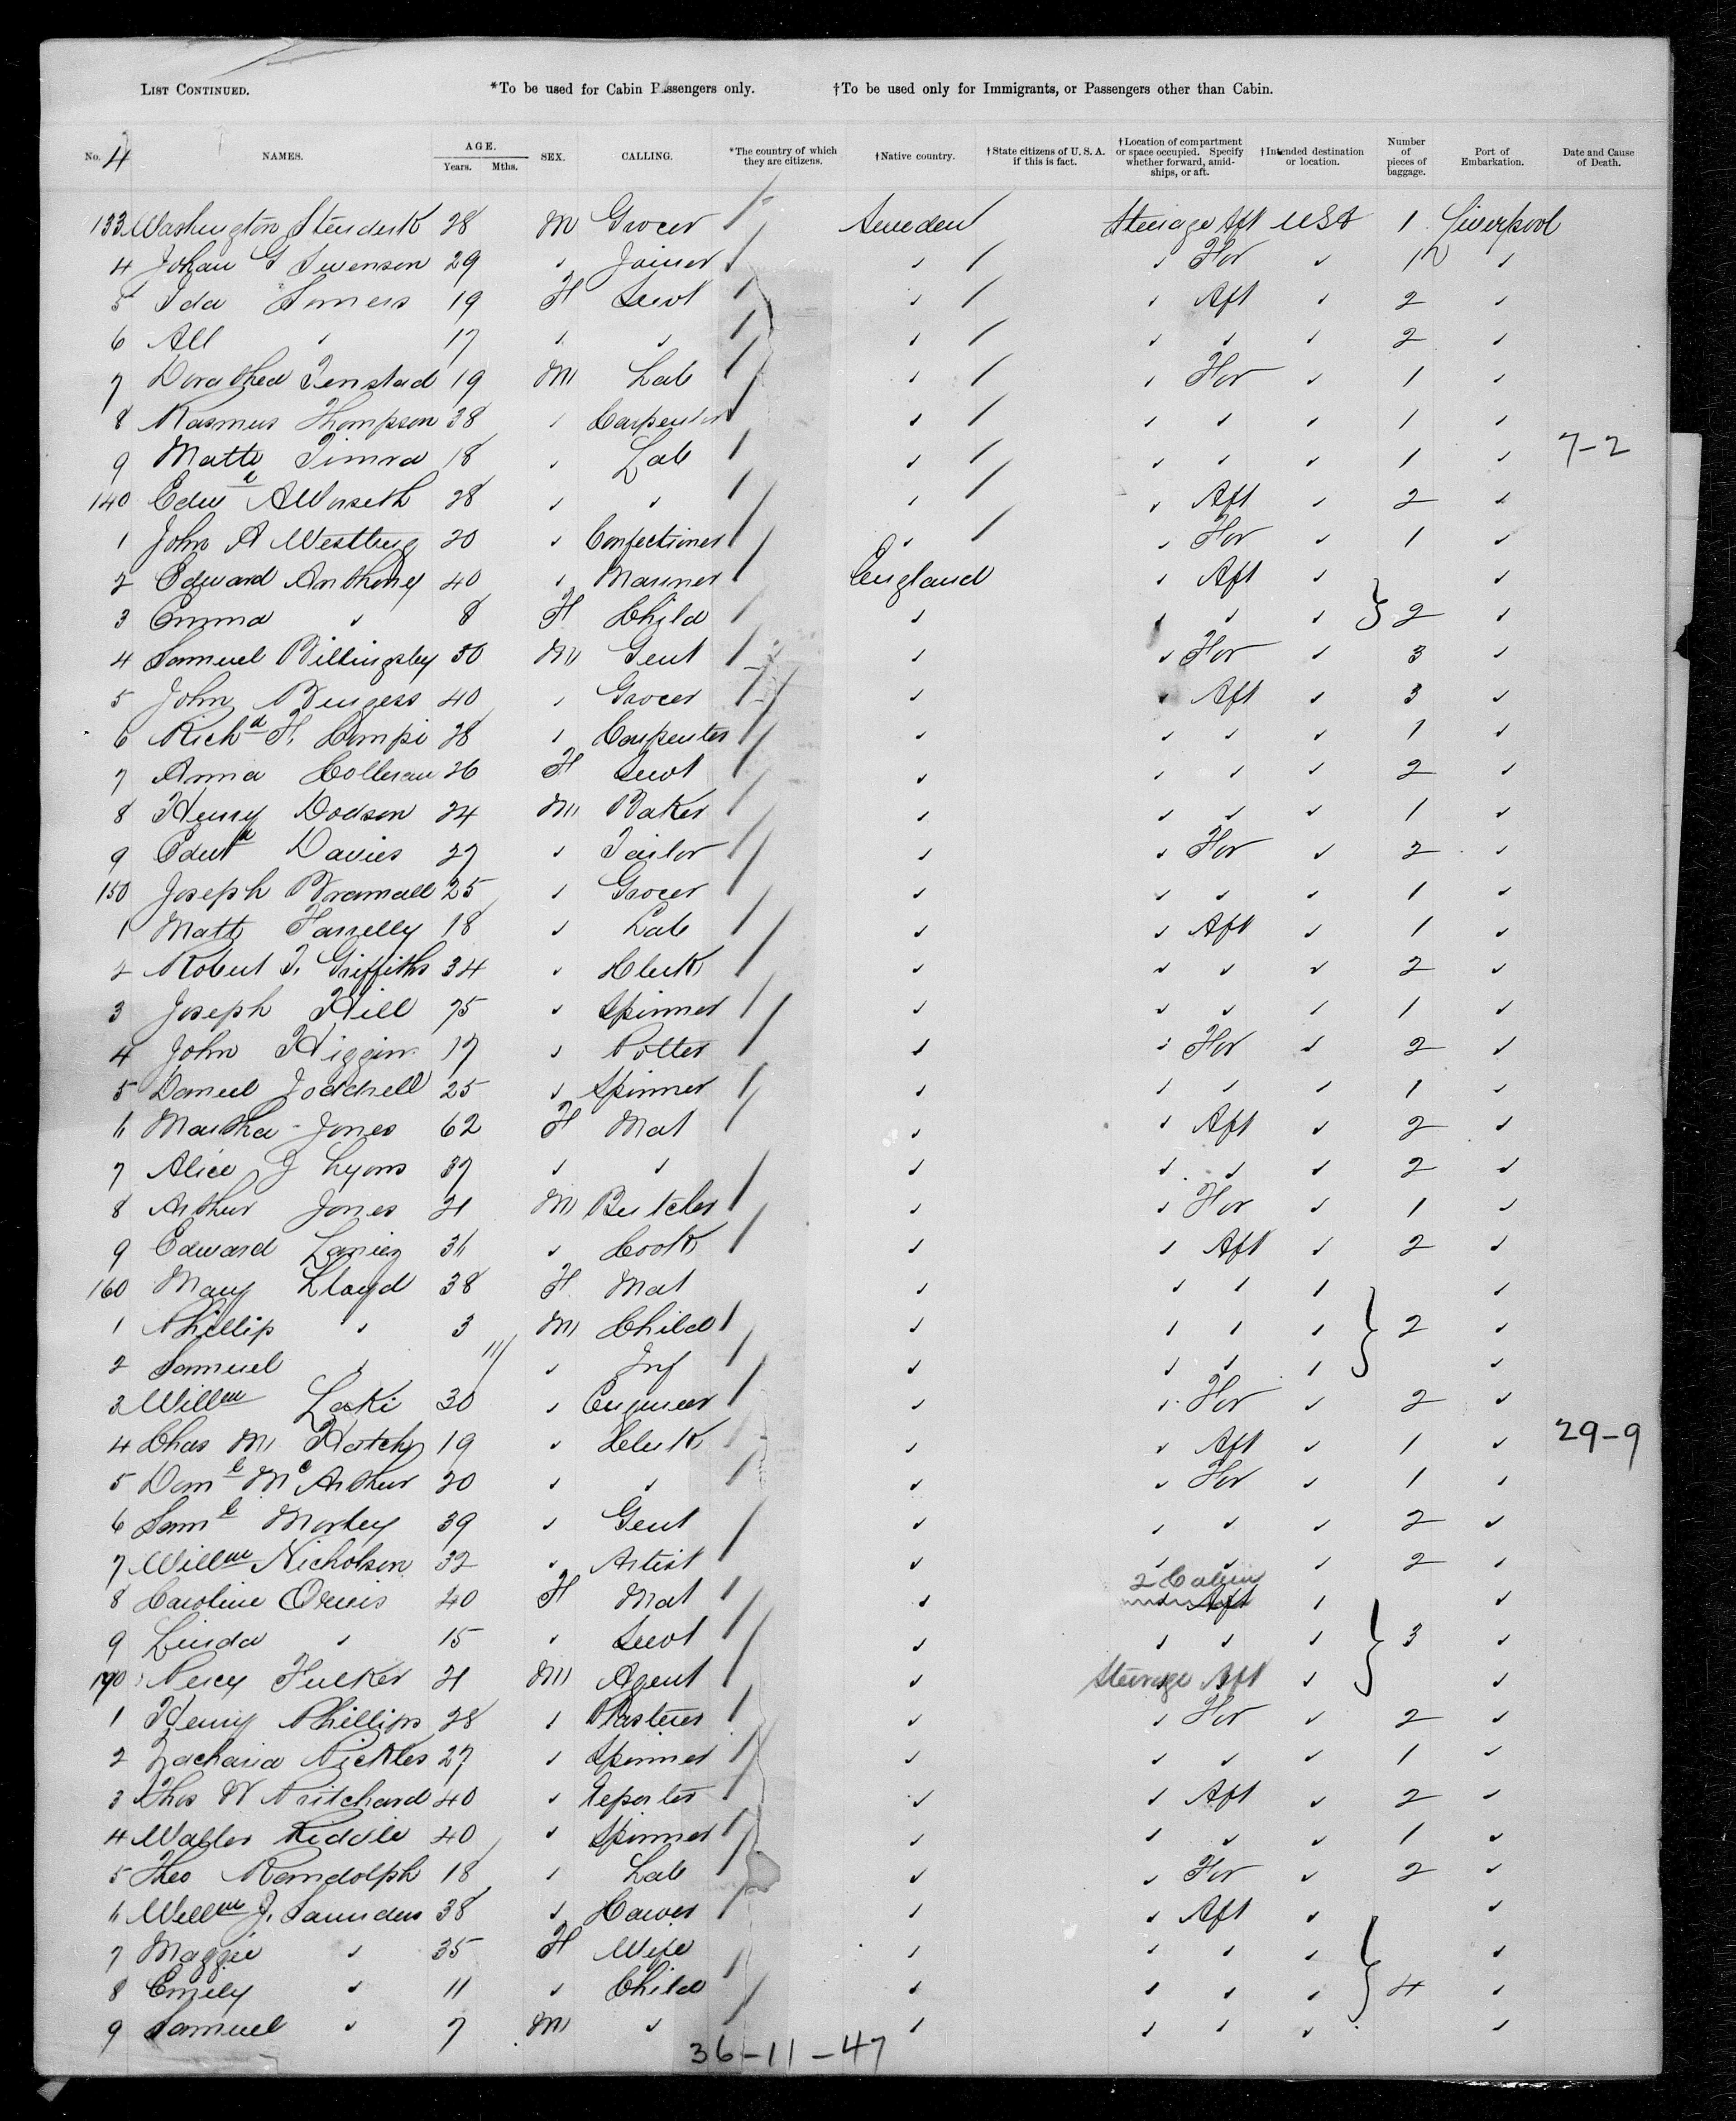 LIST CONTINUED. *To be used for Cabin Passengers only. †To be used only for Immigrants, or Passengers other than Cabin.
No. 4 NAMES. AGE. Years. Mths. SEX. CALLING. *The country of which they are citizens. †Native country. †State citizens of U. S. A. if this is fact. †Location of compartment or space occupied. Specify whether forward, amidships, or aft. †Intended destination or location. Number of pieces of baggage. Port of Embarkation. Date and Cause of Death.
133 Washington 28 M Grocer Sweden Steerage Aft USA 1 Liverpool
4 Johan G Swenson 29 " Joiner " " For " 1 "
5 Ida Somers 19 F Servt " " Aft " 2 "
6 All " 17 " " " " " " 2 "
7 Dorathea Tenstad 19 M Lab " " For " 1 "
8 Rasmus Thompson 38 " Carpenter " " " " 1 "
9 Matts 18 " Lab " " " " 1 " 7-2
140 Edwd 28 " " " " Aft " 2 "
1 John A Westberg 20 " Confectioner " " For " 1 "
2 Edward Anthony 40 " Mariner England " Aft " "
3 Emma " 8 F Child " " " " } 2 "
4 Samuel Billingsley 50 M Gent " " For " 3 "
5 John Burgess 40 " Grocer " " Aft " 3 "
6 Richd H. 28 " Carpenter " " " " 1 "
7 Anna Colleran 26 F Servt " " " " 2 "
8 Henry Dodson 24 M Baker " " " " 1 "
9 Edwd Davies 27 " Tailor " " For " 2 "
150 Joseph Bramall 25 " Grocer " " " " 1 "
1 Matt Farrelly 18 " Lab " " Aft " 1 "
2 Robert T. Griffiths 34 " Clerk " " " " 2 "
3 Joseph Hill 75 " Spinner " " " " 1 "
4 John Higgin 17 " Potter " " For " 2 "
5 Daniel Joddrell 25 " Spinner " " " " 1 "
6 Martha Jones 62 F Mat " " Aft " 2 "
7 Alice J Lyons 37 " " " " " " 2 "
8 Arthur Jones 21 M Butcher " " For " 1 "
9 Edward 36 " Cook " " Aft " 2 "
160 Mary Lloyd 38 F Mat " " " " "
1 Phillip " 3 M Child " " " " } 2 "
2 Samuel " 11/ " Inf " " " " "
3 Willm 30 " Engineer " " For " 2 "
4 Chas M. Hatch 19 " Clerk " " Aft " 1 " 29-9
5 Danl McArthur 20 " " " " For " 1 "
6 Saml Morley 39 " Gent " " " " 2 "
7 Willm Nicholson 32 " Artist " " " " 2 "
8 Caroline 40 F Mat " 2 Cabin Aft " "
9 Linda " 15 " Servt " " " " } 3 "
170 Percy 21 M Agent " Steerage Aft " "
1 Henry Phillips 28 " Plasterer " " For " 2 "
2 Zacharia Pickles 27 " Spinner " " " " 1 "
3 Thos W Pritchard 40 " Reporter " " Aft " 2 "
4 Walter Riddle 40 " Spinner " " " " 1 "
5 Theo Randolph 18 " Lab " " For " 2 "
6 Willm J. Saunders 38 " " " Aft " "
7 Maggie " 35 F Wife " " " " "
8 Emily " 11 " Child " " " " } 4 "
9 Samuel " 7 M " " " " " "
36-11-47